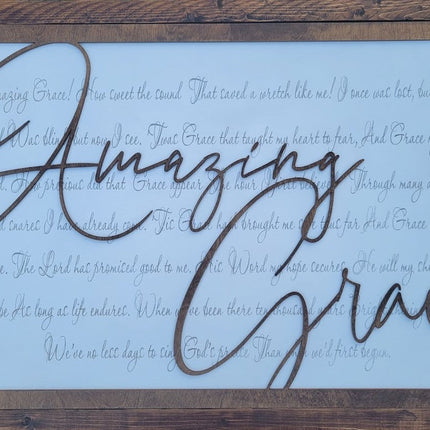 Amazing
Grac
azing Grace! How sweet the sound That saved a wretch like me! I once was lost, but
Was blind but now I see. 'Twas Grace that taught my heart to fear, And Grace
How precious did that Grace appear The hour I first believed. Through many
snares I have already come. 'Tis Grace hath brought me safe thus far And Grace
The Lord has promised good to me. His Word my hope secures. He will my sh
be As long as life endures. When we've been there ten thousand years Bright shining
We've no less days to sing God's praise Than when we'd first begun.